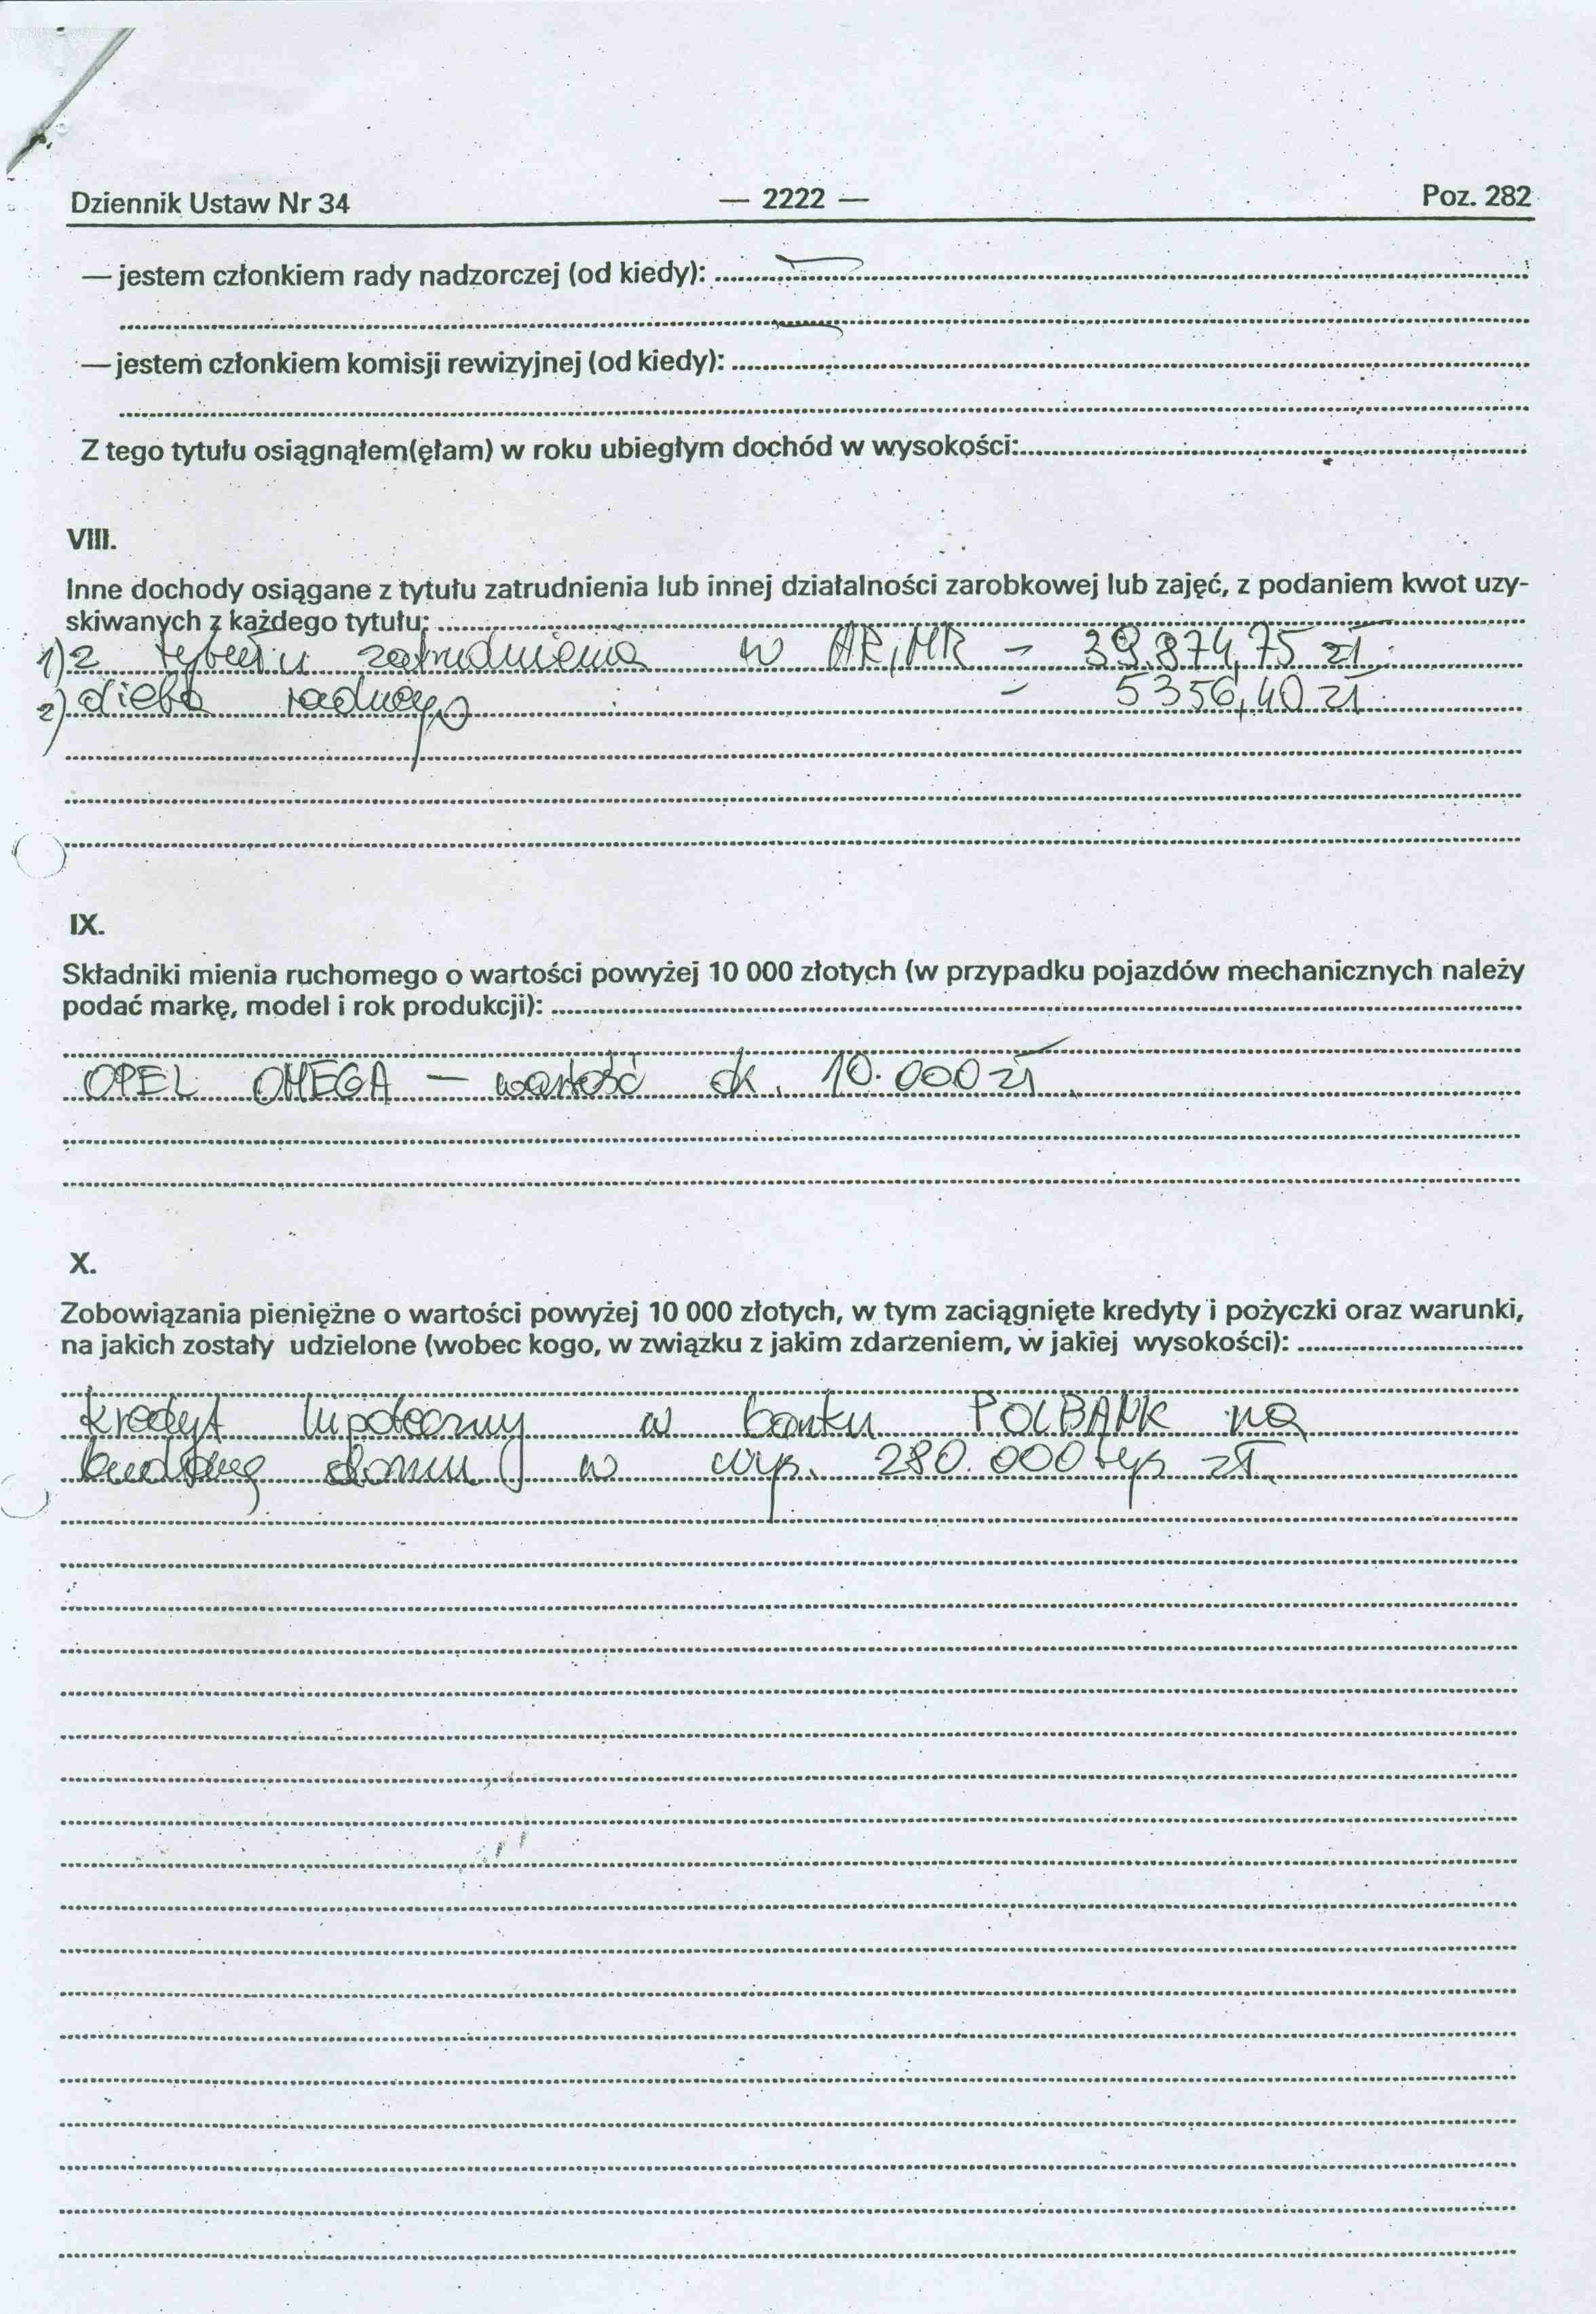 Dziennik Ustaw Nr 34 — 2222 — Poz. 282
— jestem członkiem rady nadzorczej (od kiedy):
— jestem członkiem komisji rewizyjnej (od kiedy):
Z tego tytułu osiągnąłem(ęłam) w roku ubiegłym dochód w wysokości:
VIII.
Inne dochody osiągane z tytułu zatrudnienia lub innej działalności zarobkowej lub zajęć, z podaniem kwot uzy-
skiwanych z każdego tytułu:
1) z tytułu zatrudnienia w ARiMR – 39.874,75 zł.
2) dieta radnego – 5356,40 zł.
IX.
Składniki mienia ruchomego o wartości powyżej 10 000 złotych (w przypadku pojazdów mechanicznych należy
podać markę, model i rok produkcji):
OPEL OMEGA — wartość ok. 10.000 zł.
X.
Zobowiązania pieniężne o wartości powyżej 10 000 złotych, w tym zaciągnięte kredyty i pożyczki oraz warunki,
na jakich zostały udzielone (wobec kogo, w związku z jakim zdarzeniem, w jakiej wysokości):
kredyt hipoteczny w banku POLBANK na
budowę domu w wys. 280.000 tys zł.